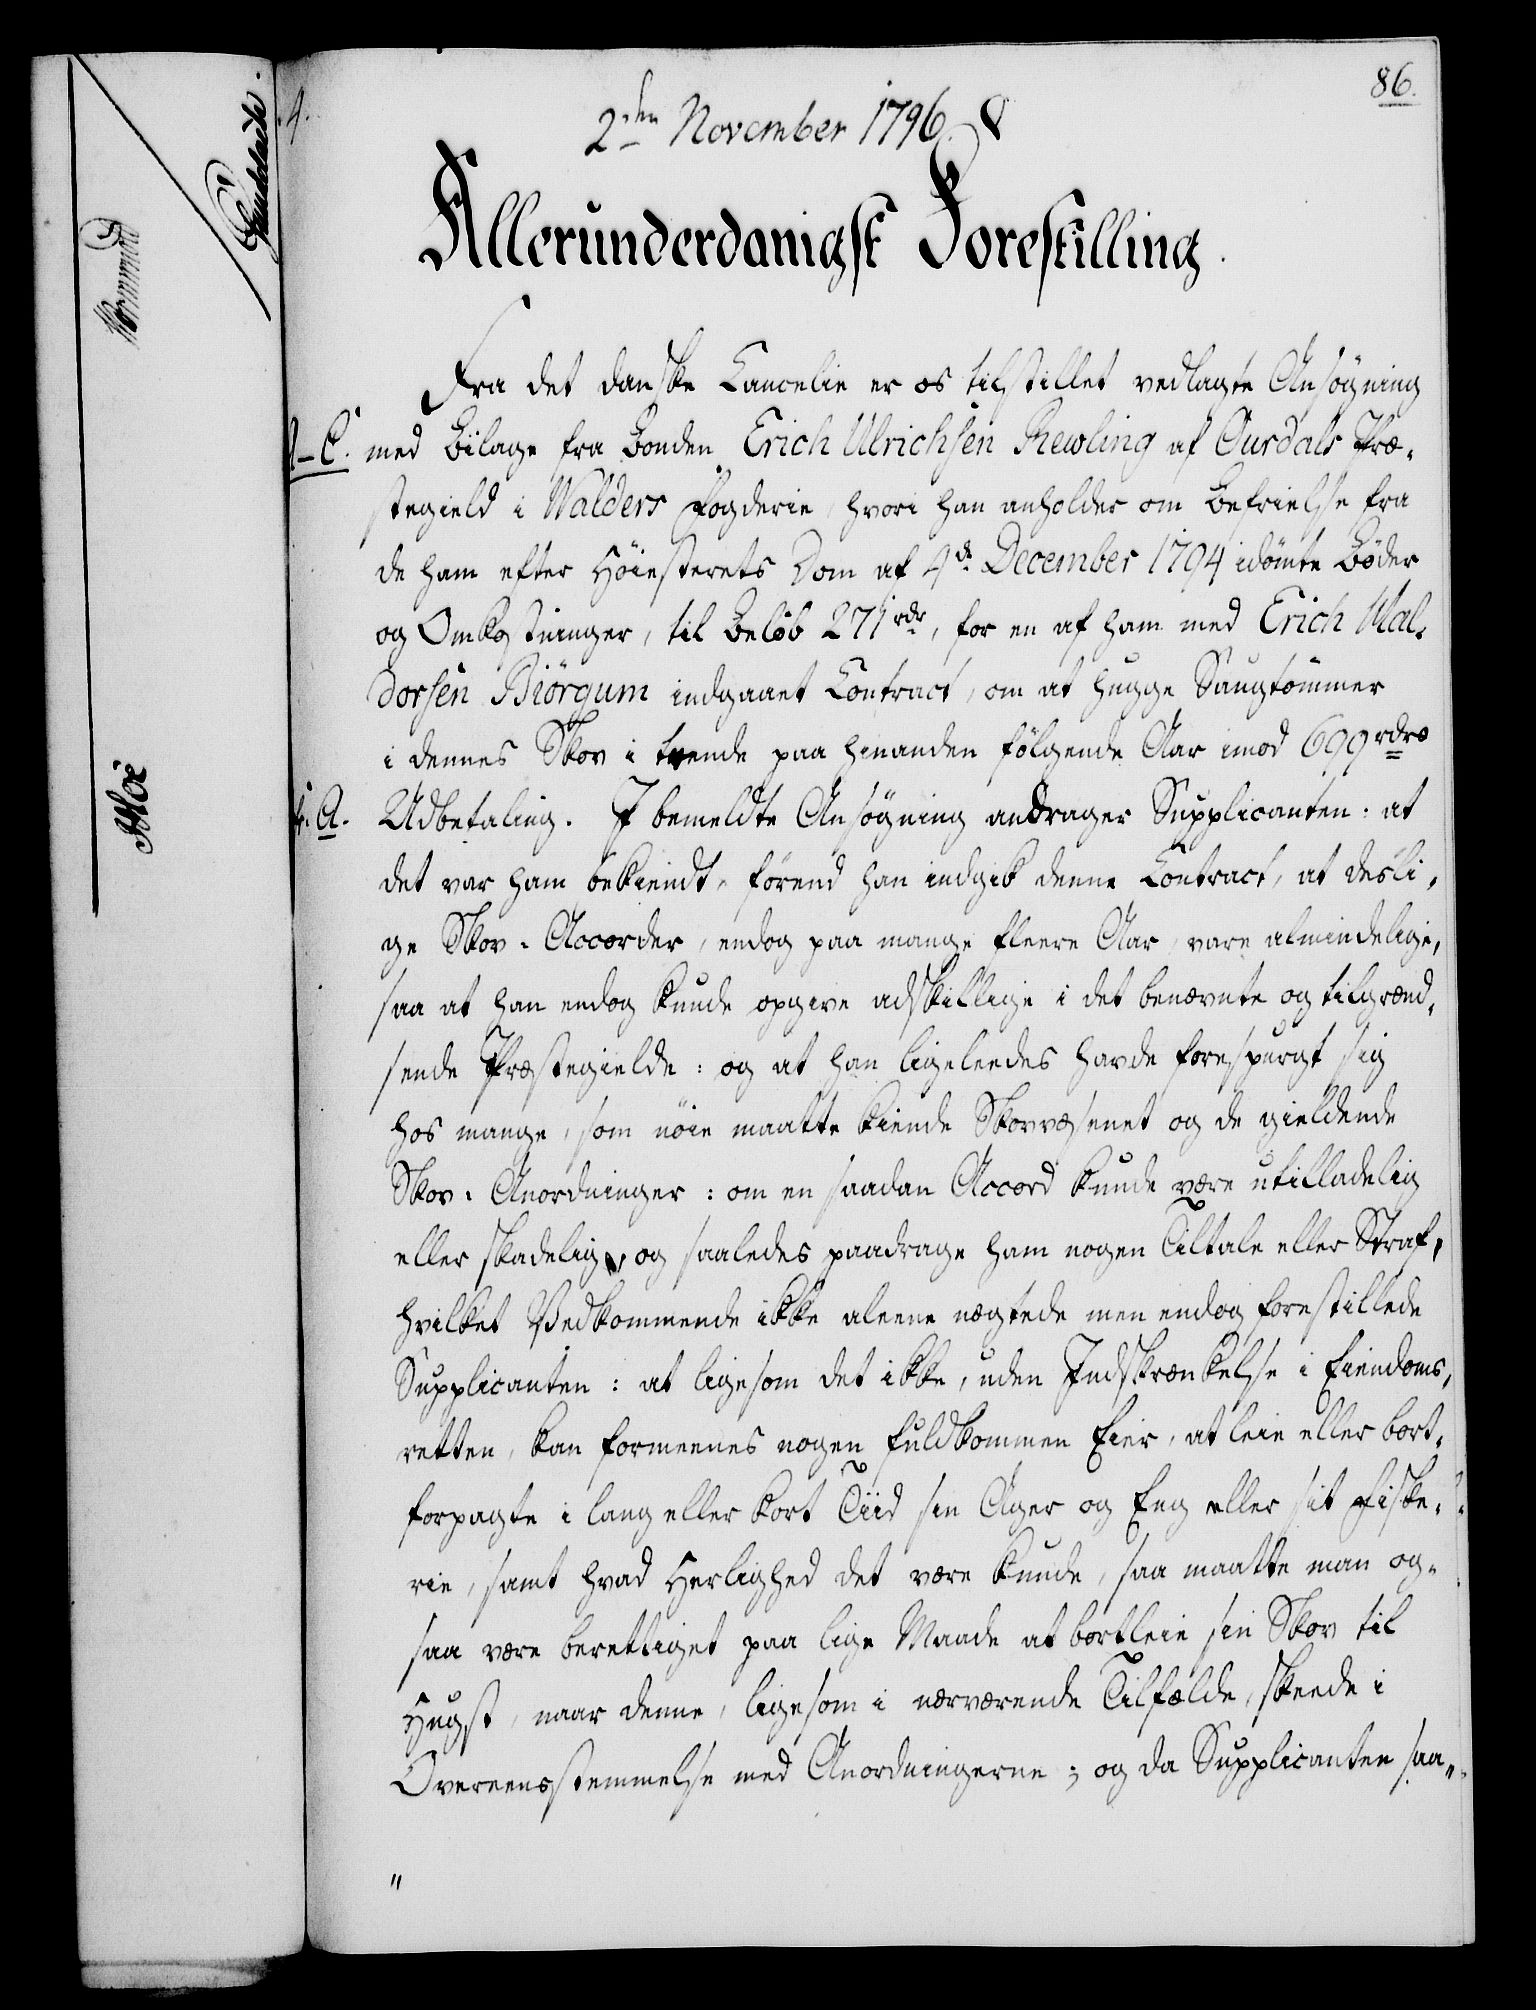 86.
4.
2den November 1796.
Allerunderdanigst Forestilling.
Fra det danske Cancelie er os tilstillet vedlagte Ansøgning
A-C. med Bilage fra Bonden Erich Ulrichsen Rewling af Ourdals Præ-
stegield i Walders Fogderie, hvori han anholder om Befrielse fra
de ham efter Høiesterets Dom af 4de December 1794 idømte Bøder
og Omkostninger, til Beløb 271 rdr, for en af ham med Erich Hal-
dorsen Biörgum indgaaet Contract, om at hugge Saugtømmer
i dennes Skov i tvende paa hinanden følgende Aar imod 699 rdrs
A. Udbetaling. I bemeldte Ansøgning andrager Supplicanten: at
det var ham bekiendt, førend han indgik denne Contract, at desli-
ge Skov-Accorder, endog paa mange fleere Aar, vare almindelige,
saa at han endog kunde opgive adskillige i det benævnte og tilgrænd-
sende Præstegielde: og at han ligeleedes havde forespurgt sig
hos mange, som nøie maatte kiende Skovvæsenet og de gieldende
Skov-Anordninger: om en saadan Accord kunde være utilladelig
eller skadelig, og saaledes paadrage ham nogen Tiltale eller Straf,
hvilket Vedkommende ikke aleene nægtede men endog forestillede
Supplicanten: at ligesom det ikke, uden Indskrænkelse i Eiendoms-
retten, kan formeenes nogen fuldkommen Eier, at leie eller bort-
forpagte i lang eller kort Tiid sin Ager og Eng eller sit Fiske-
rie, samt hvad Herlighed det være kunde, saa maatte man og-
saa være berettiget paa lige Maade at bortleie sin Skov til
Hugst, naar denne, ligesom i nærværende Tilfælde, skeede i
Overeensstemmelse med Anordningerne; og da Supplicanten saa-
"
Moe